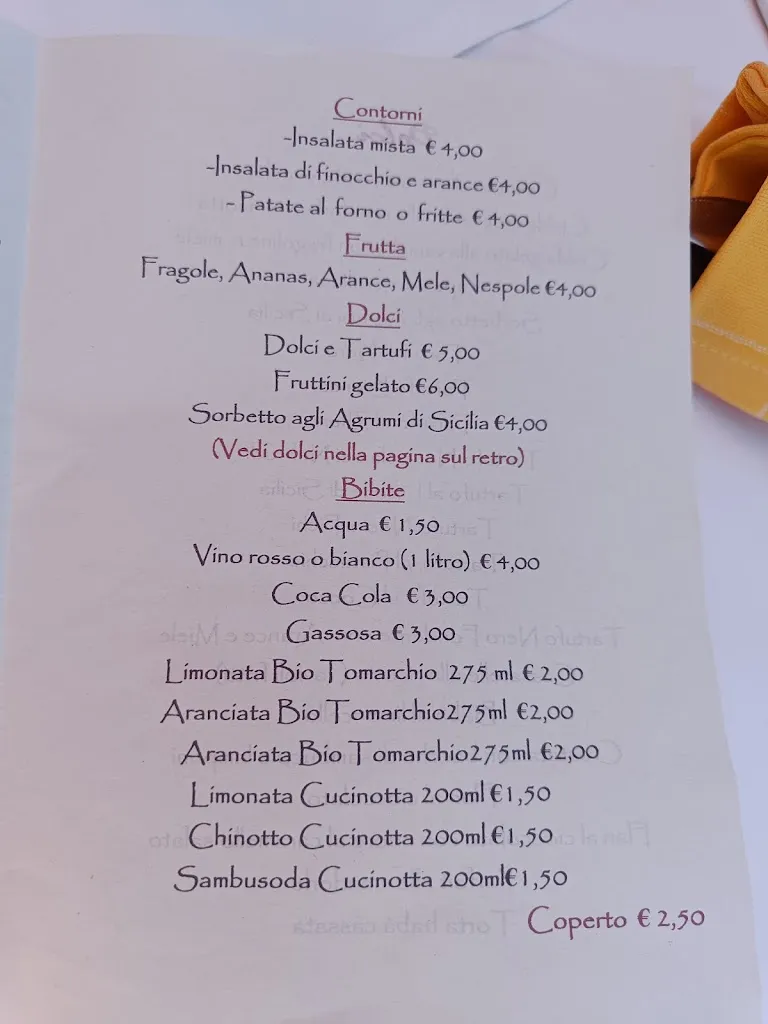 Contorni
-Insalata mista € 4,00
-Insalata di finocchio e arance €4,00
- Patate al forno o fritte € 4,00
Frutta
Fragole, Ananas, Arance, Mele, Nespole €4,00
Dolci
Dolci e Tartufi € 5,00
Fruttini gelato €6,00
Sorbetto agli Agrumi di Sicilia €4,00
(Vedi dolci nella pagina sul retro)
Bibite
Acqua € 1,50
Vino rosso o bianco (1 litro) € 4,00
Coca Cola € 3,00
Gassosa € 3,00
Limonata Bio Tomarchio 275 ml € 2,00
Aranciata Bio Tomarchio275ml €2,00
Aranciata Bio Tomarchio275ml €2,00
Limonata Cucinotta 200ml €1,50
Chinotto Cucinotta 200ml €1,50
Sambusoda Cucinotta 200ml€1,50
Coperto € 2,50